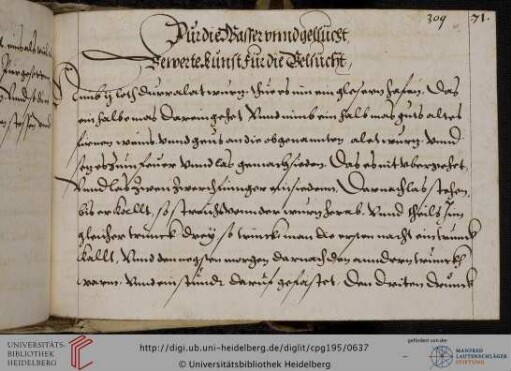 309 71.
Für die Wasser vnnd gelsücht
Bewerte kunst für die Gelsücht,
Nimb ij loth dürr alat wurz. thue es inn ein glesern hafen, Das
ein halbe mas darein gehet Vnnd nimb ein halb mas guts altes
firnen weins. vnnd geus an die obgenannten alat wurz. vnnd
setz es zum feuer vnnd las gemach sieden. Das es nit vbergehet,
Vnnd las zwen zwerch finnger einsieden. Darnach las stehen
bis erkallt, so streichs von der wurz herab. Vnnd theils inn
gleicher trünck drey so trinckt man die ersten nacht ein trünck
kallt, Vnnd den negsten morgen darnach den anndern trünckh
warm. Vnnd ein stündt daruf gefastet. Den dritten drünck
UNIVERSITÄTS-
BIBLIOTHEK
HEIDELBERG
http://digi.ub.uni-heidelberg.de/diglit/cpg195/0637
© Universitätsbibliothek Heidelberg
gefördert von der
MANFRED
LAUTENSCHLÄGER
STIFTUNG